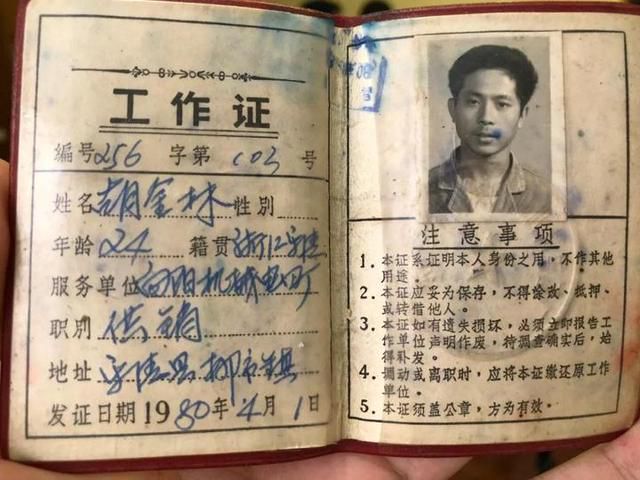 工作证
编号256字第003号
姓名胡金林性别
年龄24籍贯浙江乐清
服务单位向阳机械厂
职别供销
地址乐清县柳市镇
发证日期1980年4月1日
注意事项
1. 本证系证明本人身份之用，不作其他
用途。
2. 本证应妥为保存，不得涂改、抵押、
或转借他人。
3. 本证如有遗失损坏，必须立即报告工
作单位声明作废，待调查确实后，始
得补发。
4. 调动或离职时，应将本证缴还原工作
单位。
5. 本证须盖公章，方为有效。